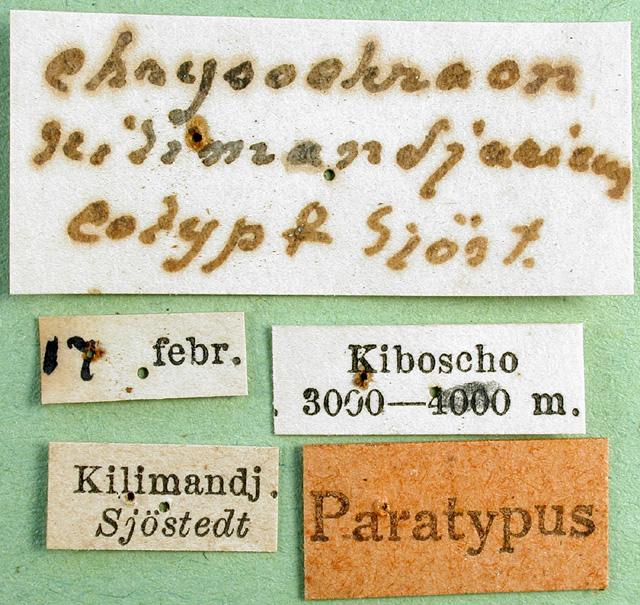 chrysochraon
kilimandjaricus
cotyp ♀ Sjöst.
17 febr.
Kiboscho
3000—4000 m.
Kilimandj.
Sjöstedt
Paratypus